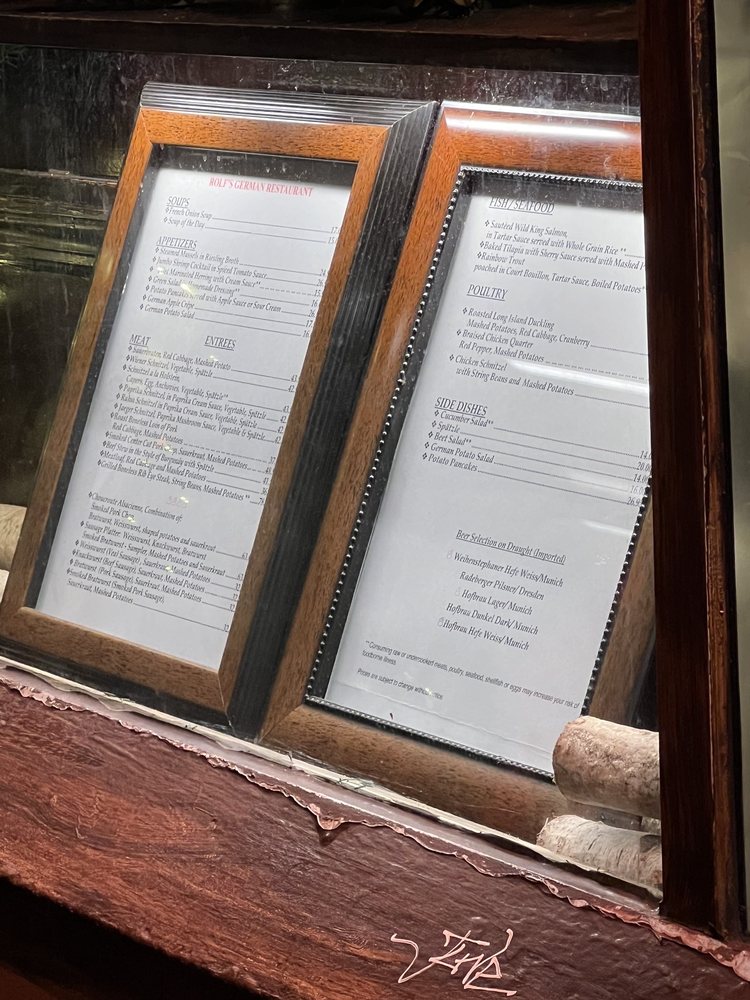 ROLF'S GERMAN RESTAURANT
SOUPS
❖French Onion Soup
❖ Soup of the Day
APPETIZERS
❖ Steamed Mussels in Riesling Broth
❖ Jumbo Shrimp Cocktail in Spiced Tomato Sauce
Marinated Herring with Cream Sauce**
❖ Green Salad Homemade Dressing**
Potato Pancakes served with Apple Sauce or Sour Cream
❖ German Apple Crêpe
❖ German Potato Salad
MEAT ENTREES
❖ Sauerbraten, Red Cabbage, Mashed Potato
❖ Wiener Schnitzel, Vegetable, Spätzle
❖ Schnitzel a la Holstein,
Capers, Egg, Anchovies, Vegetable, Spätzle**
❖ Paprika Schnitzel in Paprika Cream Sauce, Vegetable, Spätzle
❖ Rahm Schnitzel in Paprika Cream Sauce, Vegetable, Spätzle
❖ Jaeger Schnitzel, Paprika Mushroom Sauce, Vegetable & Spätzle
❖ Roast Boneless Loin of Pork
Red Cabbage, Mashed Potatoes
❖ Smoked Center Cut Pork Chop, Sauerkraut, Mashed Potatoes
❖Beef Stew in the Style of Burgundy with Spätzle
❖ Meatloaf, Red Cabbage and Mashed Potatoes
❖Grilled Boneless Rib Eye Steak, String Beans, Mashed Potatoes **
❖Choucroute Alsacienne, Combination of:
Smoked Pork Chop,
Bratwurst, Weisswurst, shaped potatoes and sauerkraut
❖ Sausage Platter: Weisswurst, Knackwurst, Bratwurst
Smoked Bratwurst - Sampler, Mashed Potatoes and Sauerkraut
❖ Weisswurst (Veal Sausage), Sauerkraut, Mashed Potatoes
❖Knackwurst (Beef Sausage), Sauerkraut, Mashed Potatoes
❖ Bratwurst (Pork Sausage), Sauerkraut, Mashed Potatoes
❖Smoked Bratwurst (Smoked Pork Sausage),
Sauerkraut, Mashed Potatoes
FISH / SEAFOOD
❖ Sautéed Wild King Salmon,
in Tartar Sauce served with Whole Grain Rice **
❖Baked Tilapia with Sherry Sauce served with Mashed
❖Rainbow Trout
poached in Court Bouillon, Tartar Sauce, Boiled Potatoes**
POULTRY
❖ Roasted Long Island Duckling
Mashed Potatoes, Red Cabbage, Cranberry
❖ Braised Chicken Quarter
Red Pepper, Mashed Potatoes
❖ Chicken Schnitzel
with String Beans and Mashed Potatoes
SIDE DISHES
❖ Cucumber Salad**
❖ Spätzle
❖ Beet Salad**
❖ German Potato Salad
❖ Potato Pancakes
Beer Selection on Draught (Imported)
Weihenstephaner Hefe Weiss/Munich
Radeberger Pilsner/ Dresden
Hofbrau Lager/ Munich
Hofbrau Dunkel Dark/ Munich
Hofbrau Hefe Weiss/ Munich
**Consuming raw or undercooked meats, poultry, seafood, shellfish or eggs may increase your risk of
foodborne illness
Prices are subject to change without notice